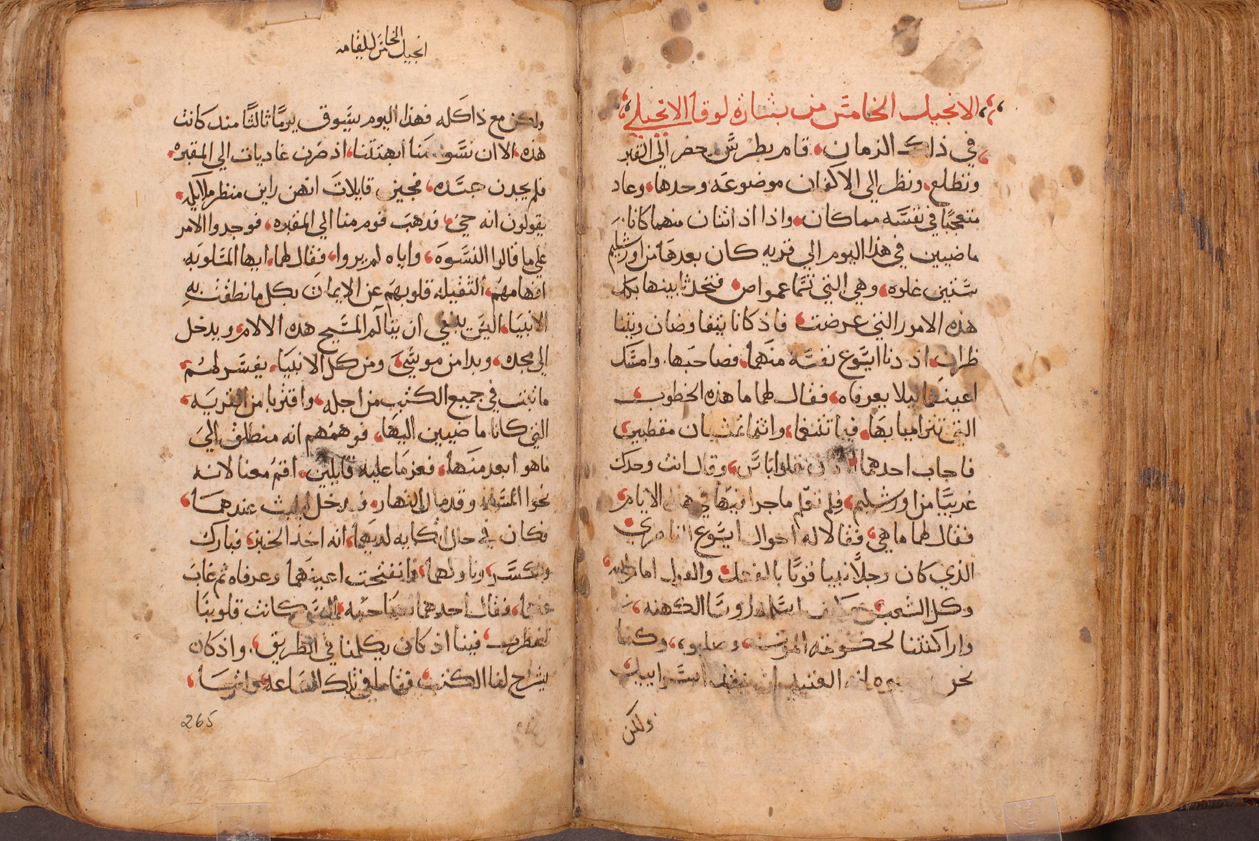 الانجيل الخامس من بشارة لوقا الانجيلي
في ذلك الزمان، قام بطرس يحضر الى القبر
وتطلع ونظر الى الاكفان موضوعه وحدها، وعاد
متعجبًا في نفسه مما كان، واذا اثنان منهما كانا
ماضيين في هذا اليوم الى قريه كان بعدها من اورشليم
ستين غلوه، وهي التي تسما عمواص فتحدثا بينها بكل
هذه الامور التي عرضت، فاذ كانا يتفاوضان ويتنا
ظران، اذ دنا ايسوع نفسه منهما، فصاحبها، وامسك
اعينهما ليلا يعرفاه، فقال لهما ما هذه الخطوب
التي تتراميا بها، فيما بينكما، وانتما تمشيان مقطبين
فاجاب احدهما قلاوباس، وقال انت وحدك
غريبًا من اورشليم، فلم تعلم ما جرا فيها في هذه الايام
فقال لهما ما هي، فقالا له احوال ايسوع الناصري
الذي كان رجلًا نبيا قويًا بالفعل والقول امام الله
وكل الشعب، اسلموه روسا الكهنه،
واراكنتنا لحكومة الموت، وصلبوه،، وكنا
نحن اسراييل
ولكن
انجيل الخامس للقيامه
ولكن مع ذا كله فهذا اليوم يسوق يومًا ثالثًا منذ كانت
هذه، الا ان نسوه منا ابهتتنا، اذ صرن غاديات الى المقبره،
فلم يجدن جسده، فجين قايلات انهن راين منظر ملايكه،
يقولون انه حي، فذهب قوم منا الى المقبره، فوجدوا الامر
على ما قالوا النسوه، واياه لم يروا، فقال لهما، ايها المسلوبه
افهامهم، الثقيله قلوبهم عن الايمان بكل ما نطقت به
الانبيا، اليس ينبغي ان يتالم المسيح هذه الالام ويدخل
الى مجده، وبدا من موسى ومن كل الانبيا، يفسر لهم
ما ثبت في جميع الكتب من اجله، واقتربا من القريه،
التي كانا ماضيين اليها، فوهمهم انه منطلق الى
ما هو ابعد منها، فعزما عليه قايلين، اقم معنا لانه
نحوا المسا، وقد مال النهار، فدخل ليلبث عندهما،
فكان في حال اتكايه لديهما، انه اخذ الخبز، فبارك
وكسر، وناولهما، فانفتحت اعينهما وعرفاه ثم غاب
عنهما، فقال احدهما لصاحبه كانت قلوبنا
تضطرب، فينا اذ كان يكلمنا في الطريق، واذ كان
يشرح لنا الكتب، فقاما في تلك الساعه،
265